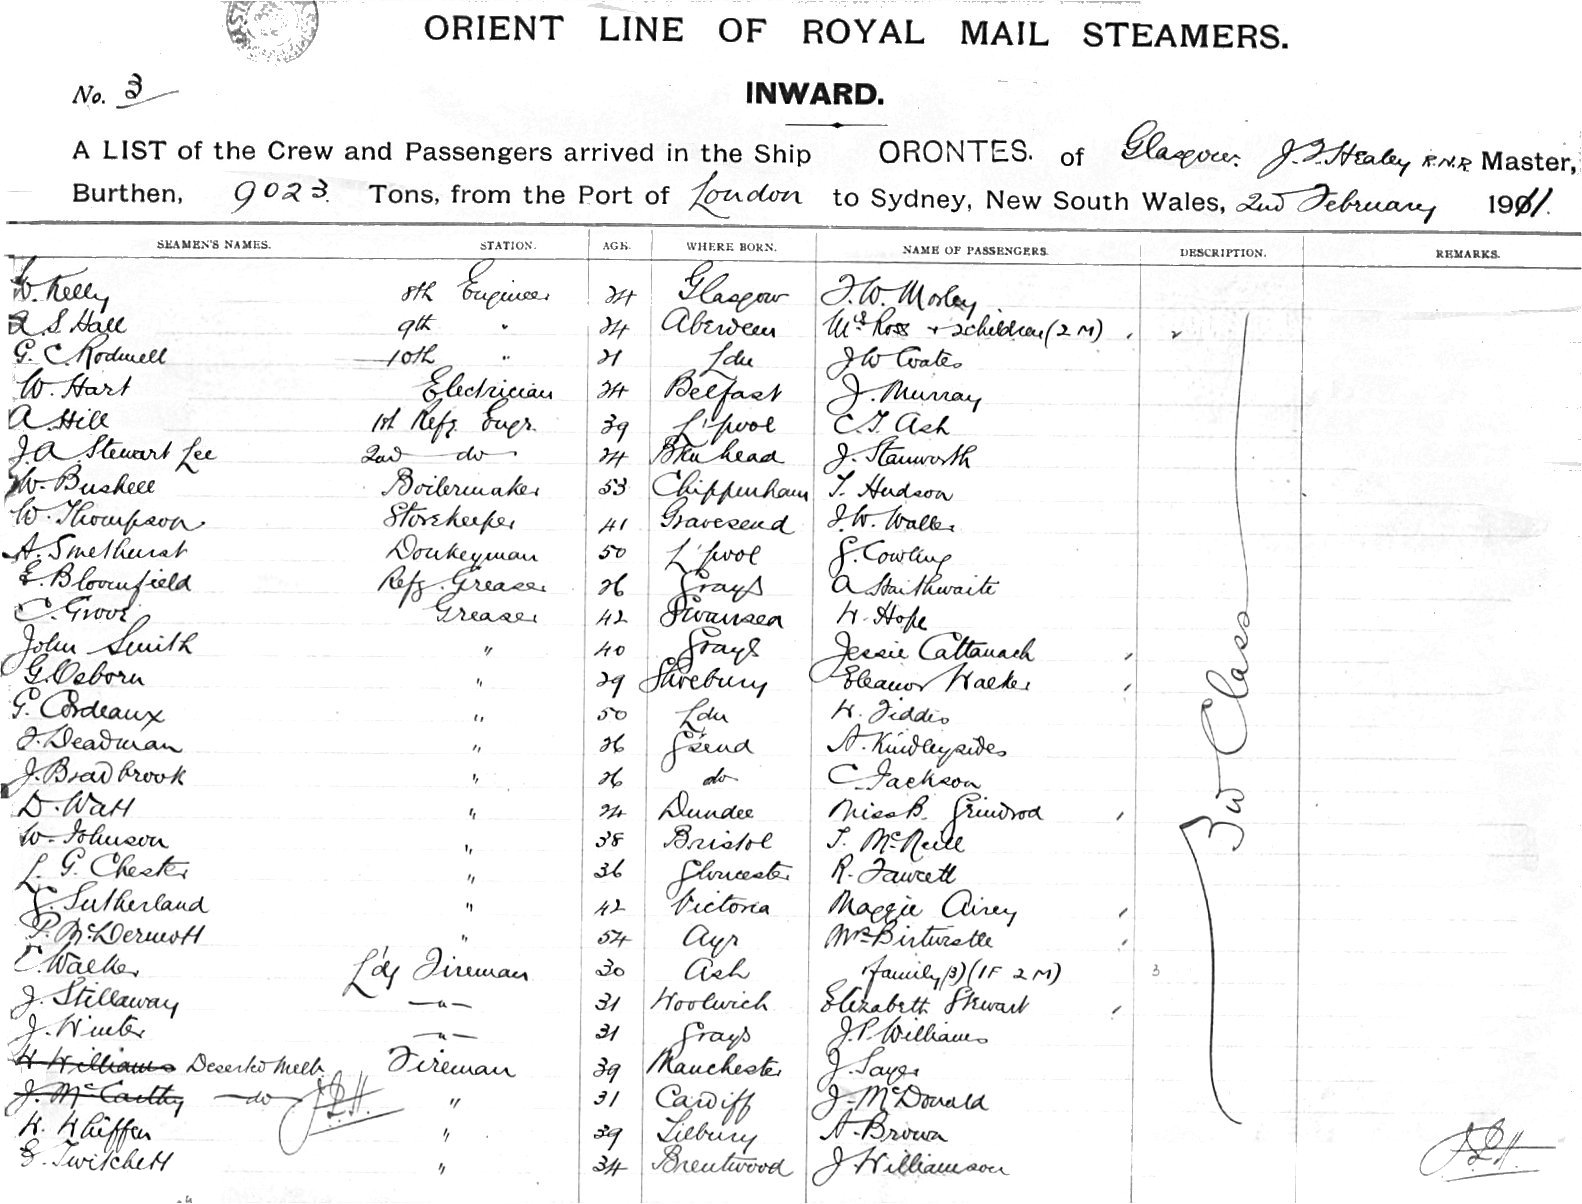 ORIENT LINE OF ROYAL MAIL STEAMERS.
No. 3
INWARD.
A LIST of the Crew and Passengers arrived in the Ship ORONTES. of Glasgow. J.F. Healey R.N.R. Master,
Burthen, 9023 Tons, from the Port of London to Sydney, New South Wales, 2nd February 1911.
SEAMEN'S NAMES. STATION. AGE. WHERE BORN. NAME OF PASSENGERS. DESCRIPTION. REMARKS.
W. Kelly 8th Engineer 24 Glasgow F.W. Morley
A.S Hall 9th " 24 Aberdeen Mrs Ross + 2 children (2 M)
G. C. Rodwell 10th " 21 Ldn J W Coates
W. Hart Electrician 24 Belfast J. Murray
A. Hill 1st Refg. Engr. 39 L'pool C.T. Ash
J.A Stewart Lee 2nd do 24 B'kn head J. Stanworth
W. Bushell Boilermaker 53 Chippenham T. Hudson
W. Thompson Storekeeper 41 Gravesend J.W. Waller
A. Smethurst Donkeyman 50 L'pool G. Cowling
E. Bloomfield Refg. Greaser 26 Grays A Haithwaite
C. Grove Greaser 42 Swansea H. Hope
John Smith " 40 Grays Jessie Cattanach
G. Osborn " 29 Shoebury Eleanor Walker
G. Cordeaux " 50 Ldn H. Fiddis
F. Deadman " 26 G'send A. Kindleysides
J. Bradbrook " 26 do C. Jackson
D. Watt " 24 Dundee Miss B. Grindrod
W. Johnson " 38 Bristol T. McNeill
L. G. Chester " 36 Gloucester R. Fawcett
G. Sutherland " 42 Victoria Maggie Airey
P. McDermott " 54 Ayr Mrs Birtwistle
C. Walker L'dg Fireman 30 Ash family (3) (1 F 2 M) 3
J. Stillaway -"- 31 Woolwich Elizabeth Stewart
J. Winter -"- 31 Grays J.P. Williams
H Williams Deserted Melb. Fireman 39 Manchester J. Sayer
J. McCarthy do " 31 Cardiff J. McDonald
H. Whiffen " 39 Tilbury A. Brown
E. Twitchett " 34 Brentwood J Williamson
3rd Class